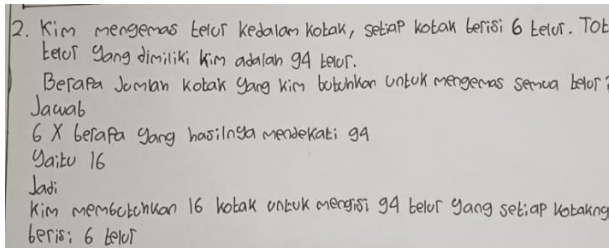 2. Kim mengemas telur kedalam kotak, setiap kotak berisi 6 telur. Tot
telur yang dimiliki Kim adalah 94 telur.
Berapa Jumlah kotak yang Kim butuhkan untuk mengemas semua telur?
Jawab
6 X berapa yang hasilnya mendekati 94
Yaitu 16
Jadi
Kim membutuhkan 16 kotak untuk mengisi 94 telur yang setiap kotakng
berisi 6 telur